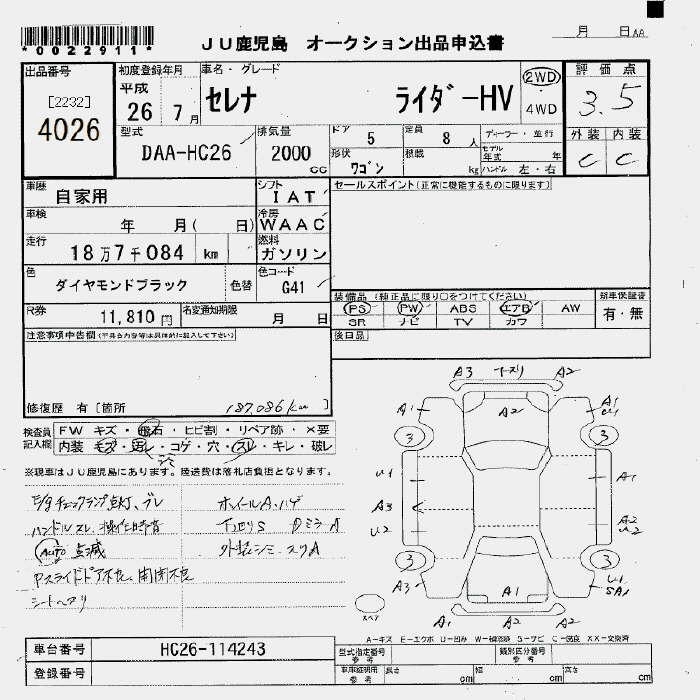 *0022911*
JU鹿児島 オークション出品申込書
月 日AA
出品番号
[2232]
4026
初度登録年月
平成
26 7月
車名・グレード
セレナ ライダーHV
2WD
・
4WD
評価点
3.5
外装 内装
C C
型式
DAA-HC26
排気量
2000
cc
ドア 5
定員 8 人
形状 ワゴン
積載 kg
ディーラー・並行
モデル年式 年
ハンドル 左・右
車歴
自家用
シフト
IAT
セールスポイント(正常に機能するものに限ります)
車検
年 月( 日)
冷房
WAAC
走行
18万7千084 km
燃料
ガソリン
色
ダイヤモンドブラック
色替
色コード
G41
装備品 (純正品に限り○をつけてください)
PS PW ABS エアB AW
SR ナビ TV カワ
新車保証書
有・無
R券
11,810 円
名変通知期限
月 日
後日品
注意事項申告欄(不具合内容等は具体的に記入して下さい)
修復歴 有〔箇所 187,086km 〕
検査員記入欄
FW キズ・飛石・ヒビ割・リペア跡・×要
内装 モズ・汚レ・コゲ・穴・スレ・キレ・破レ
※現車はJU鹿児島にあります。陸送費は落札店負担となります。
E/gチェックランプ点灯、ブレ
ハンドルスレ、操作時音
AUTO 点滅
Pスライドドア不良、開閉不良
シートヘタリ
ホイールA・ハゲ
下廻りS DミラーA
外装シミ、スリA
A3 A2
A2
A1
A1
U1
3
3
U1
A3
U2
A1
A2
U2
3
3
A3
A1
U1
SA1
A2 A2
スペア
A-キズ E-エクボ U-凹み W-補修跡 S-サビ C-腐食 XX-交換済
車台番号
HC26-114243
登録番号
型式指定番号
参考
類別区分番号
参考
車庫証明用
参考
長さ cm
幅 cm
高さ cm